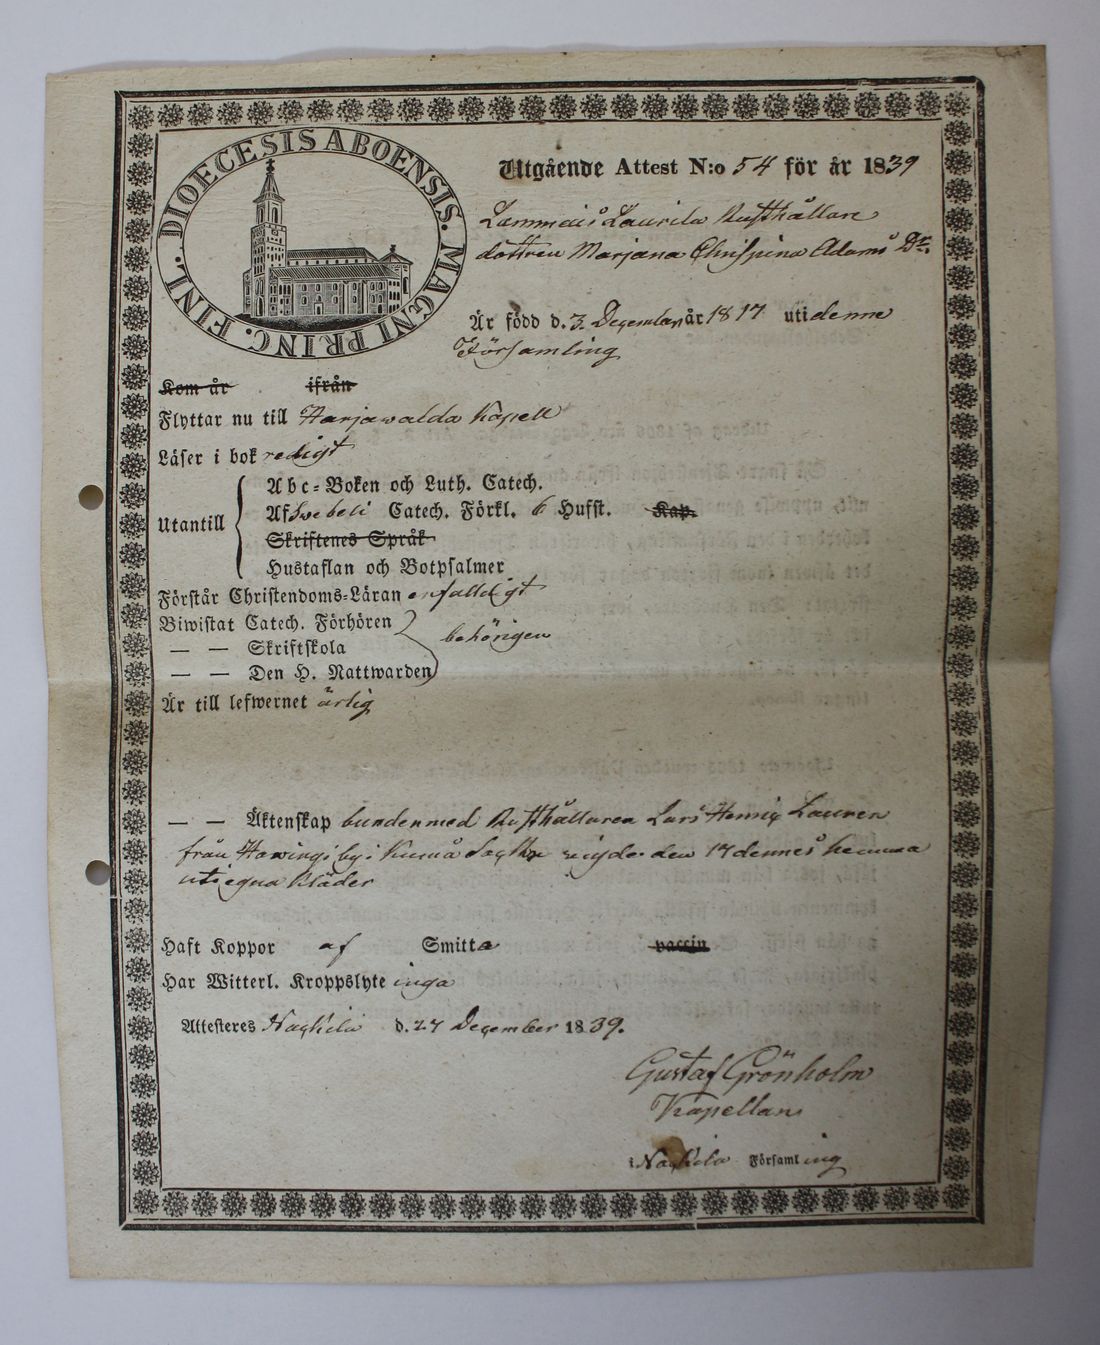 DIOECESIS ABOENSIS. MAGNI PRINC. FINL.
Utgående Attest N:o 54 för år 1839
Lammais Laurila Rusthållare
dottren Marjana Christina Adams Dr.
Är född d. 3 December år 1817 uti denne
Församling
Kom år ifrån
Flyttar nu till Harjawalda Kapell
Läser i bok redigt
Utantill
Abc-Boken och Luth. Catech.
Af Swebeli Catech. Förkl. 6 Hufst. Kap.
Skriftenes Språk
Hustaflan och Botpsalmer
Förstår Christendoms-Läran enfaldigt
Biwistat Catech. Förhören
— — Skriftskola behörigen
— — Den H. Nattwarden
Är till lefwernet ärlig
— — Äktenskap bunden med Rusthållaren Lars Henric Lauren
från Hawingi by i Kumå Sokn wigde den 17 dennes hemma
uti egna Kläder
Haft Koppor af Smitta vaccin
Har Witterl. Kroppslyte inga
Attesteres Nackila d. 27 December 1839.
Gustaf Grönholm
Kapellan
i Nackila Församling